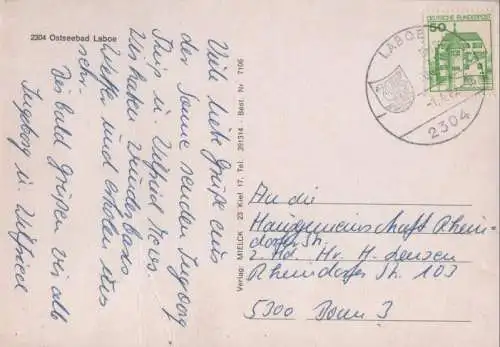 2304 Ostseebad Laboe
Viele liebe Grüße aus
der Sonne senden Ingeborg
u. Wilfried
Wir haben wunderbares
Wetter und erholen uns
sehr.
Bis bald grüßen Sie alle
Ingeborg u. Wilfried
Verlag: MIELCK 23 Kiel 17, Tel. 391314 - Best. Nr. 7106
DEUTSCHE BUNDESPOST
50
LABOE
2304
An die
Hausgemeinschaft Rhein-
dorferstr.
z. Hd. Hr. H. Lenzen
Rheindorfer Str. 103
5300 Bonn 3